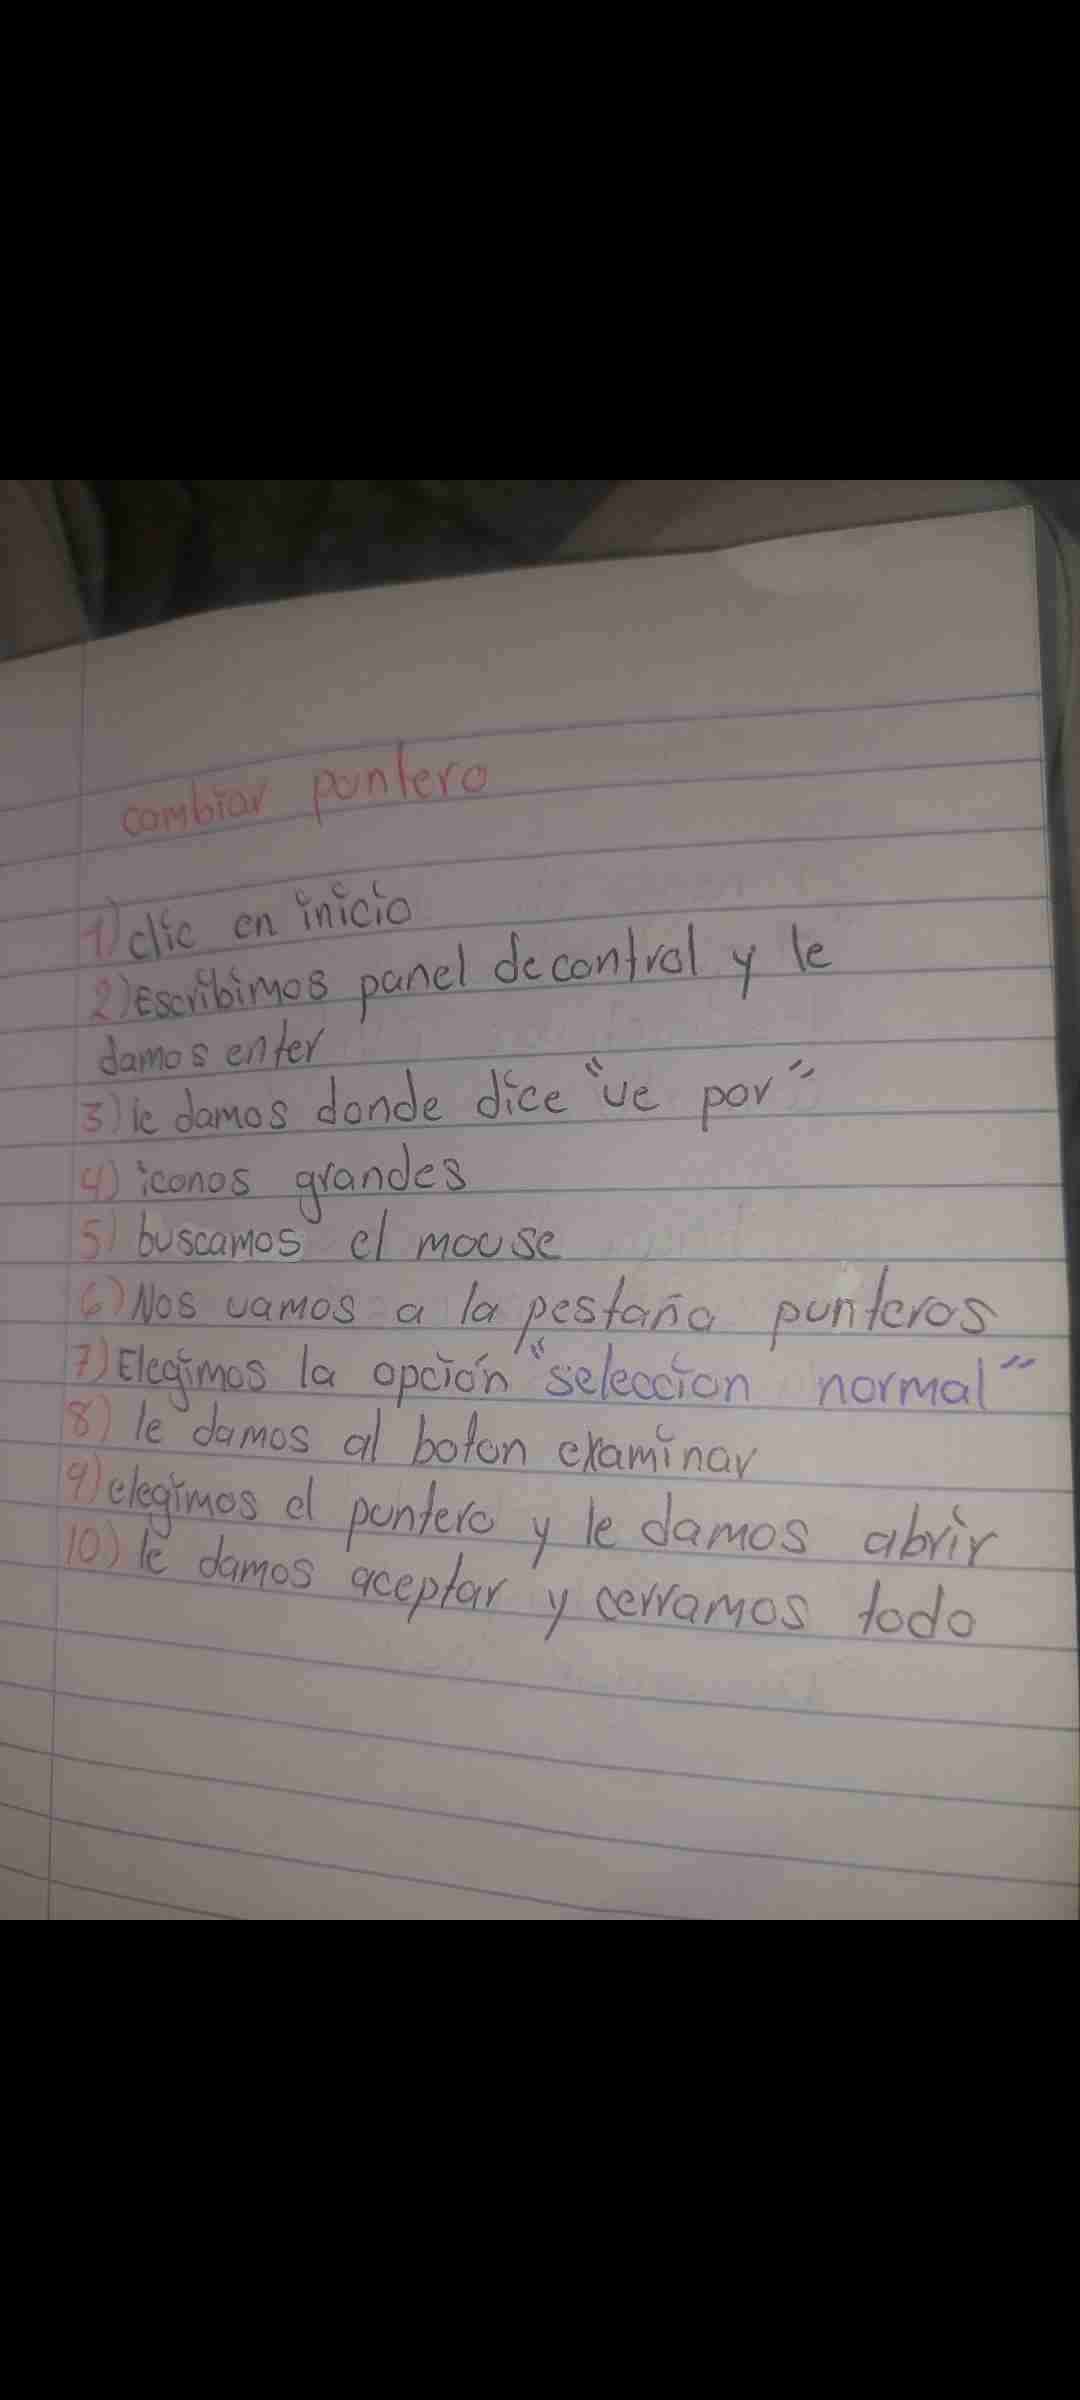 cambiar puntero
1) clic en inicio
2) Escribimos panel de control y le
damos enter
3) le damos donde dice "ve por"
4) iconos grandes
5) buscamos el mouse
6) Nos vamos a la pestaña punteros
7) Elegimos la opción "seleccion normal"
8) le damos al boton examinar
9) elegimos el puntero y le damos abrir
10) le damos aceptar y cerramos todo